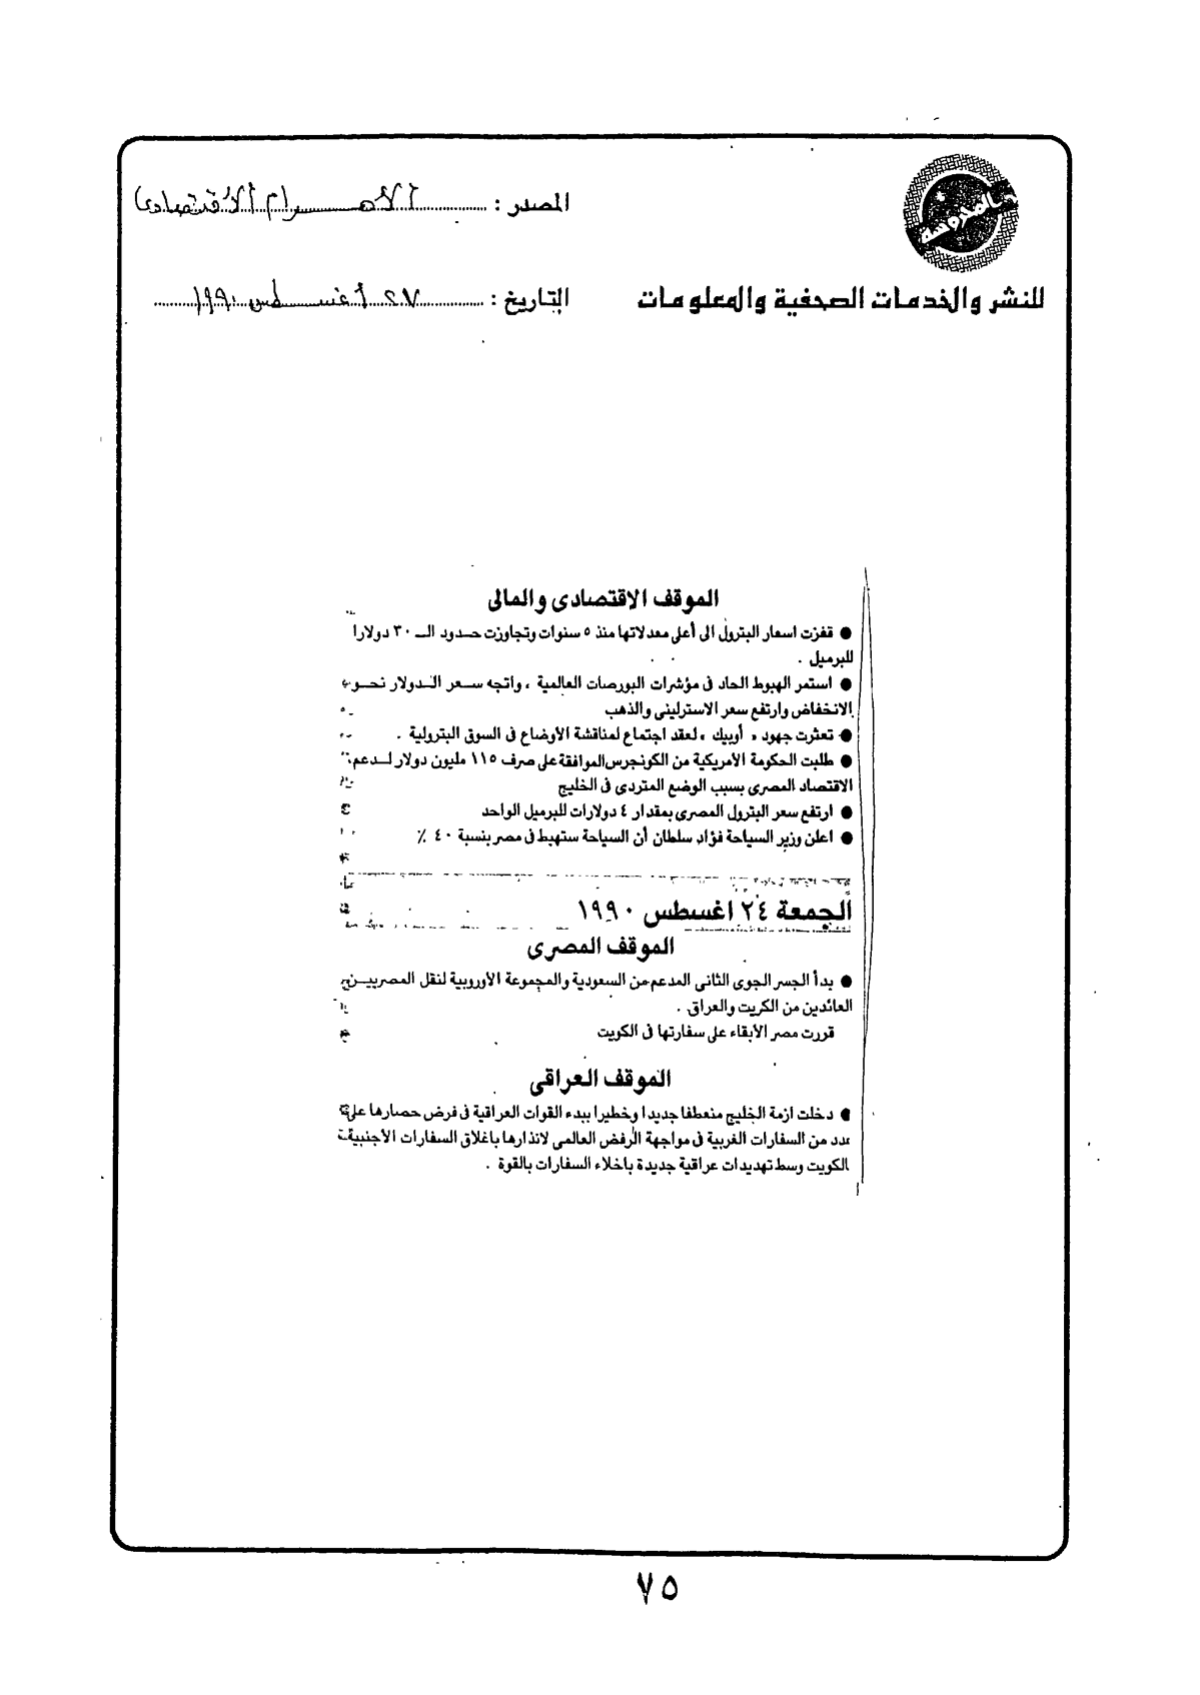 المصدر : الأهرام الاقتصادى
للنشر والخدمات الصحفية والمعلومات
التاريخ : ٢٧ أغسطس ١٩٩٠
الموقف الاقتصادى والمالى
● قفزت اسعار البترول الى أعلى معدلاتها منذ ٥ سنوات وتجاوزت حدود الـ ٣٠ دولارا
للبرميل .
● استمر الهبوط الحاد فى مؤشرات البورصات العالمية ، واتجه سعر الدولار نحو
الانخفاض وارتفع سعر الاسترلينى والذهب
● تعثرت جهود « أوبيك » لعقد اجتماع لمناقشة الأوضاع فى السوق البترولية .
● طلبت الحكومة الأمريكية من الكونجرس الموافقة على صرف ١١٥ مليون دولار لدعم
الاقتصاد المصرى بسبب الوضع المتردى فى الخليج
● ارتفع سعر البترول المصرى بمقدار ٤ دولارات للبرميل الواحد
● اعلن وزير السياحة فؤاد سلطان أن السياحة ستهبط فى مصر بنسبة ٤٠ ٪
الجمعة ٢٤ اغسطس ١٩٩٠
الموقف المصرى
● بدأ الجسر الجوى الثانى المدعم من السعودية والمجموعة الأوروبية لنقل المصريين
العائدين من الكويت والعراق .
قررت مصر الابقاء على سفارتها فى الكويت
الموقف العراقى
● دخلت ازمة الخليج منعطفا جديدا وخطيرا ببدء القوات العراقية فى فرض حصارها على
عدد من السفارات الغربية فى مواجهة الرفض العالمى لانذارها باغلاق السفارات الأجنبية
الكويت وسط تهديدات عراقية جديدة باخلاء السفارات بالقوة .
٧٥